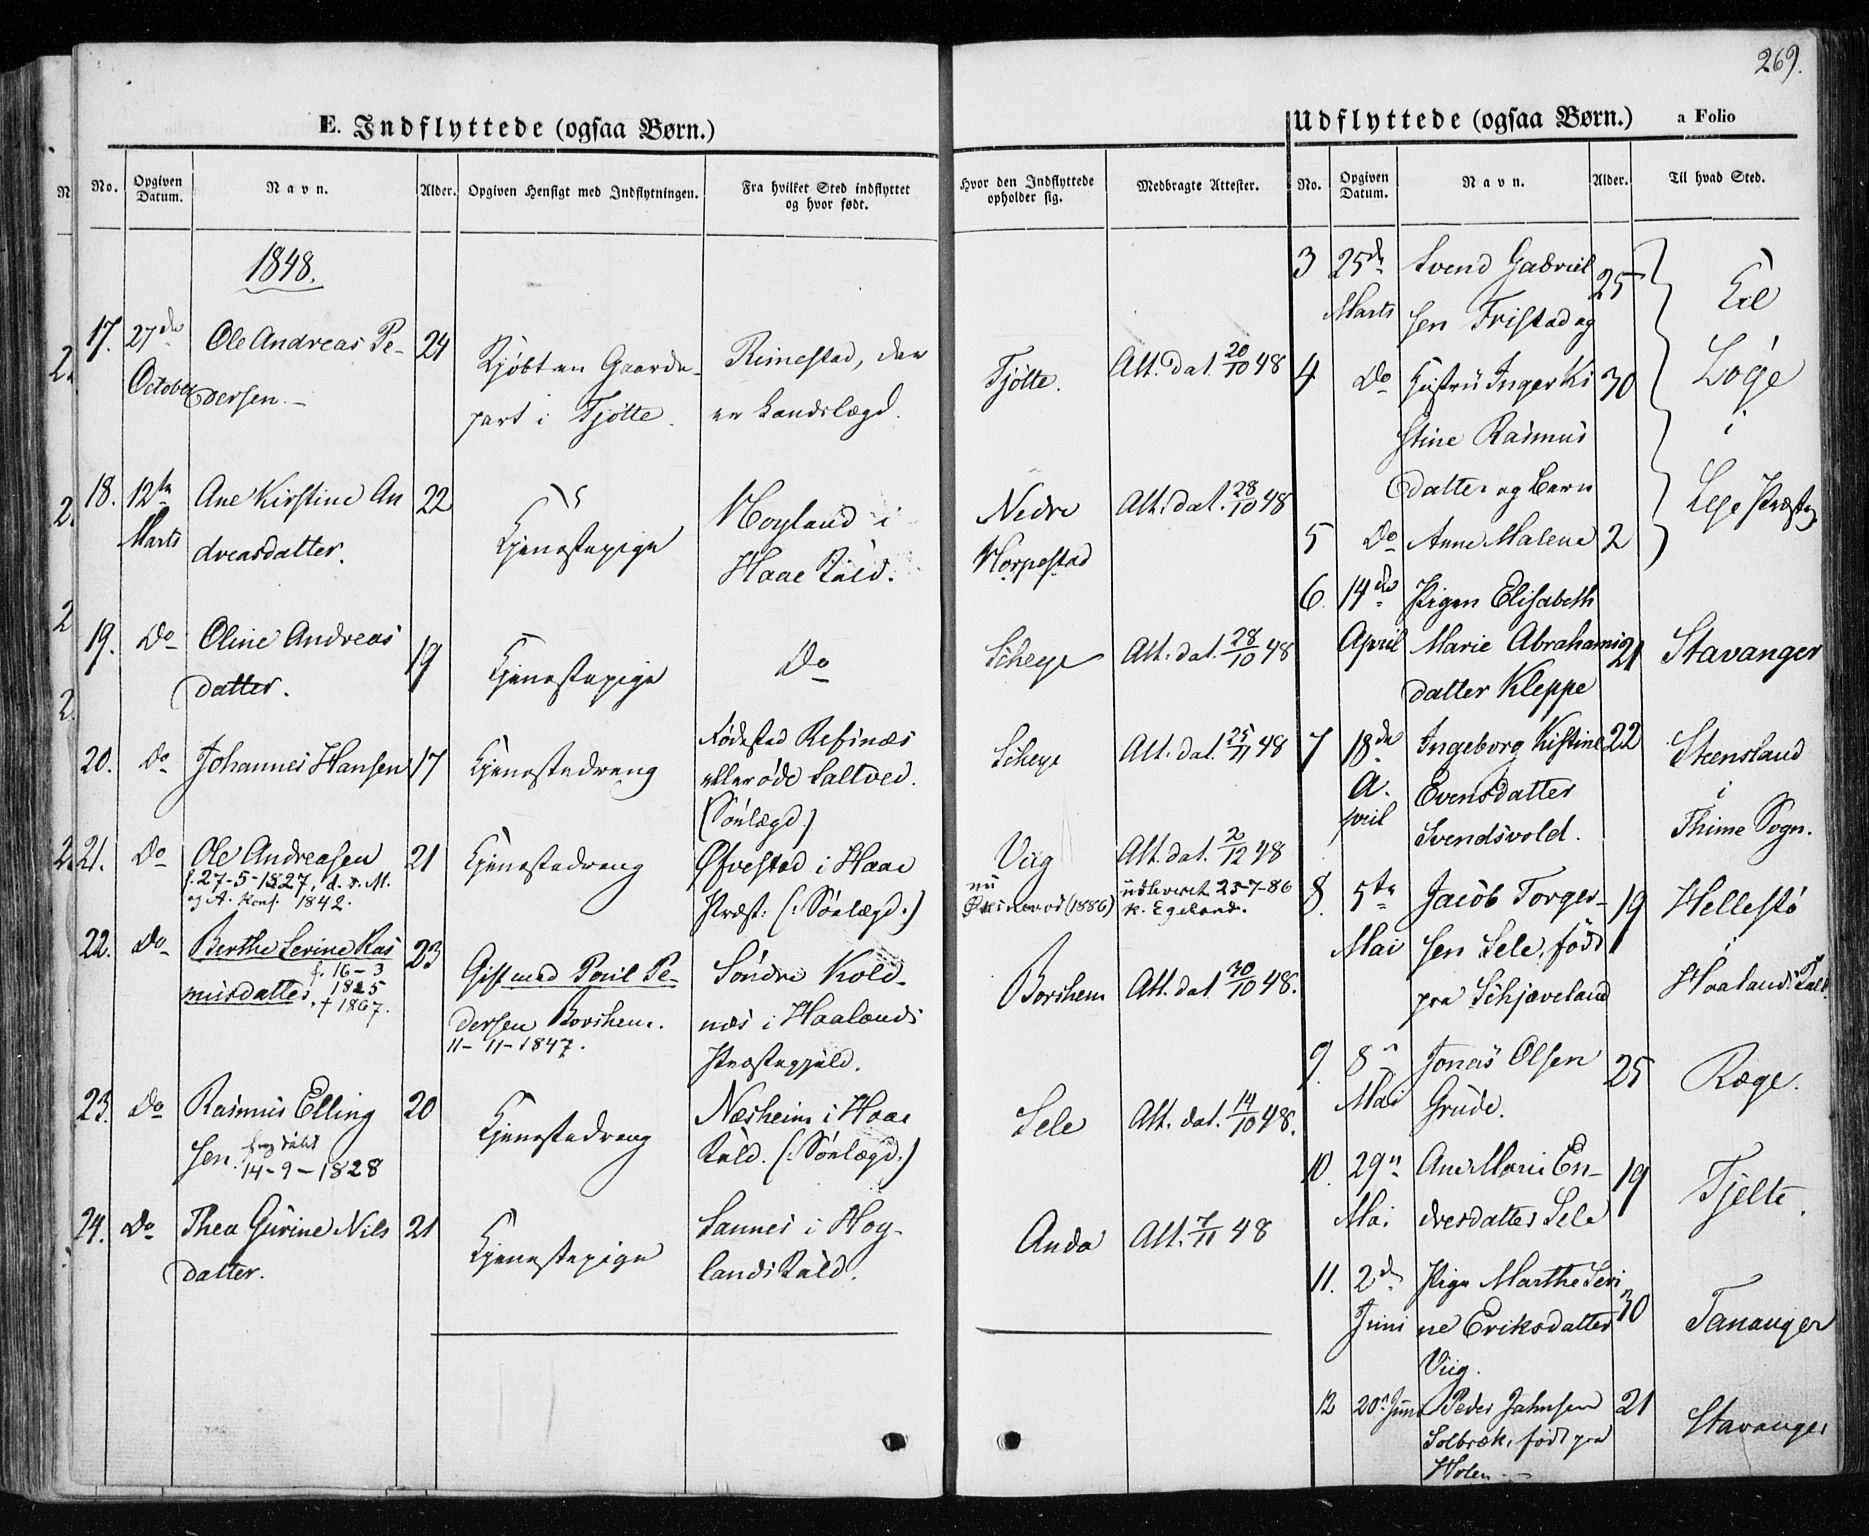 269.
E. Indflyttede (ogsaa Børn.)
No.
Opgiven Datum.
Navn.
Alder.
Opgiven Hensigt med Indflytningen.
Fra hvilket Sted indflyttet og hvor født.
Hvor den Indflyttede opholder sig.
Medbragte Attester.
1848.
17.
27de October
Ole Andreas Pe-
dersen.
24
Kjøbt en Gaarde-
part i Tjøtte.
Rimestad, der
er Landslægd.
Tjøtte.
Att. dat. 20/10 48
18.
12te Marts
Ane Kirstine An
dreasdatter.
22
Tjenestepige
Høyland i
Haae Præld.
Nedre
Horpestad
Att. dat. 28/10 48
19.
Do
Oline Andreas
datter.
19
Tjenestepige
Do
Scheye
Att. dat. 28/10 48
20.
Do
Johannes Hansen
17
Tjenestedreng
Fødested Refsnæs
eller øde Saltved.
(Sølægd.)
Scheye
Att. dat. 25/11 48
21.
Do
Ole Andreasen
f. 27-5-1827, d. v. M.
og A. Konf. 1842.
21
Tjenestedreng
Øfvestad i Haae
Præst: (: Sølægd.)
Viig
nu
(1886)
Att. dat. 2/12 48
udleveret 23-7-86
k. Egeland.
22.
Do
Berthe Serine Ras
musdatter.
f. 16-3
1825
† 1867.
23
Gift med Poul Pe-
dersen Borshem.
11-11-1847.
Søndre Kold-
næs i Haalands
Præstegjeld.
Borshem
Att. dat. 30/10 48.
23.
Do
Rasmus Elling
sen.
14-9-1828
20
Tjenestedreng
Næsheim i Haae
Præld. (: Sølægd.)
Sele
Att. dat. 14/10 48.
24.
Do
Thea Gurine Nils
datter.
21
Tjenestepige
Sannes i Høy-
lands Præld.
Anda
Att. 7/11 48
Udflyttede (ogsaa Børn.)
a Folio
No.
Opgiven Datum.
Navn.
Alder.
Til hvad Sted.
3
25de Marts
Svend Gabriel
sen Fristad og
25
4
Do
Hustru Inger Ki
stine Rasmus
datter og Barn
30
5
Do
Anne Malene
2
Til
Løge
i
Lye Præstg.
6.
14de April
Pigen Elisabeth
Marie Abrahams
datter Kleppe
21
Stavanger
7
18de A-
pril
Ingeborg Kistine
Evensdatter
Svendsvold.
22
Stensland
i
Thime Sogn.
8.
5te Mai
Jacob Torger-
sen Sele, født
paa Schjæveland
19
Hellestø
i
Haalands Præld.
9.
8n Mai
Jonas Olsen
Grude.
25
Ræge.
10.
29n Mai
Ane Marie En-
dresdatter Sele
19
Tjelte.
11.
2den Juni
Pige Marthe Seri
ne Eriksdatter
Viig.
30
Tananger
12
20n Juni
Peder Jahnsen
Solbræk, født paa
Holen
21
Stavanger